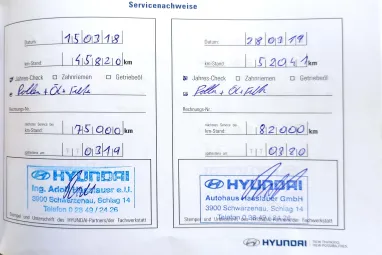 Servicenachweise
Datum: 150318
km-Stand: 45820 km
Jahres-Check Zahnriemen Getriebeöl
Pollen + Öl + Filter
Rechnungs-Nr.
km-Stand: 75000 km
0319
HYUNDAI
Ing. Adolf Haeslauer e.U.
3900 Schwarzenau, Schlag 14
Telefon 0 28 49 / 24 26
Stempel und Unterschrift des HYUNDAI-Partners/der Fachwerkstatt
Datum: 280319
km-Stand: 52041 km
Jahres-Check Zahnriemen Getriebeöl
Pollen + Öl + Filter
Rechnungs-Nr.
km-Stand: 82000 km
0320
HYUNDAI
Autohaus Haeslauer GmbH
3900 Schwarzenau, Schlag 14
Telefon 0 28 49 / 24 26
Stempel und Unterschrift des HYUNDAI-Partners/der Fachwerkstatt
HYUNDAI NEW THINKING. NEW POSSIBILITIES.